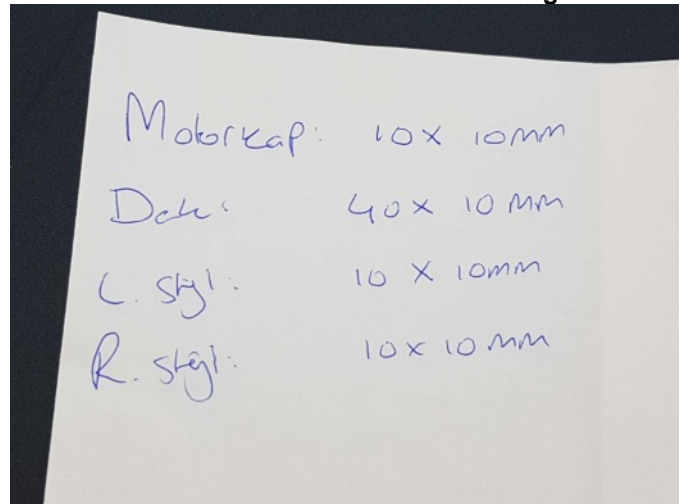 Motorkap: 10x 10mm
Dak: 40x 10mm
L. stijl: 10 x 10mm
R. stijl: 10x 10mm